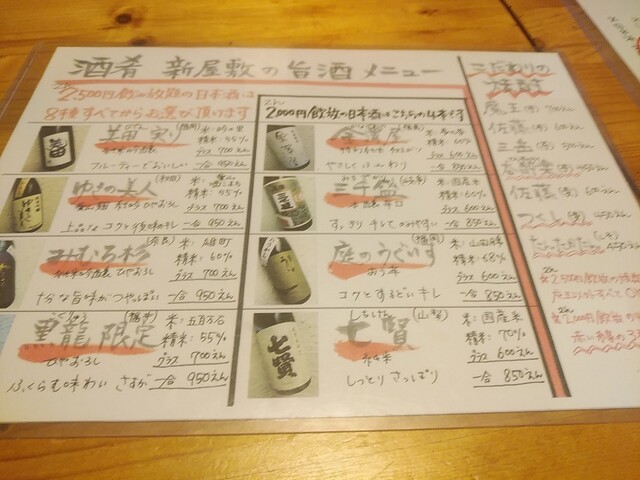 酒肴 新屋敷の旨酒メニュー
2,500円飲み放題の日本酒は
8種すべてからお選び頂けます
美田 実り (福岡)
米:吟の里
精米:55%
グラス 700えん
フルーティーでおいしい 一合 950えん
ゆきの美人 (秋田)
精米:55%
グラス 700えん
上品なコクと後味のキレ 一合 950えん
みむろ杉 (奈良)
米:雄町
精米:60%
グラス 700えん
十分な旨味がつやっぽい 一合 950えん
こくりゅう
黒龍 限定 (福井)
米:五百万石
精米:55%
ひやおろし
グラス 700えん
ふくらむ味わい さすが 一合 950えん
2,000円飲放の日本酒はこちらの4本です
精米:60%
グラス 600えん
やさしくふ〜んわり 一合 850えん
三千盛 (岐阜)
米:国産米
グラス 600えん
すっきりキレてのみやすい 一合 850えん
庭のうぐいす (福岡)
米:山田錦
精米:68%
グラス 600えん
コクとするどいキレ 一合 850えん
しちけん
七賢 (山梨)
米:国産米
精米:70%
グラス 600えん
しっとりさっぱり 一合 850えん
こだわりの
焼酎
魔王(芋) 700えん
佐藤(芋) 600えん
三岳(芋) 500えん
佐藤(麦) 500えん
つくし(麦) 450えん
たんたかたん(しそ)
※2,500円飲放の焼酎
※2,000円飲放の